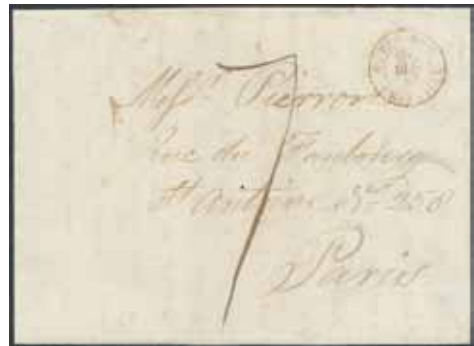 7
Mess.rs Pierron
Rue du Faubourg
St Antoine No 258
Paris